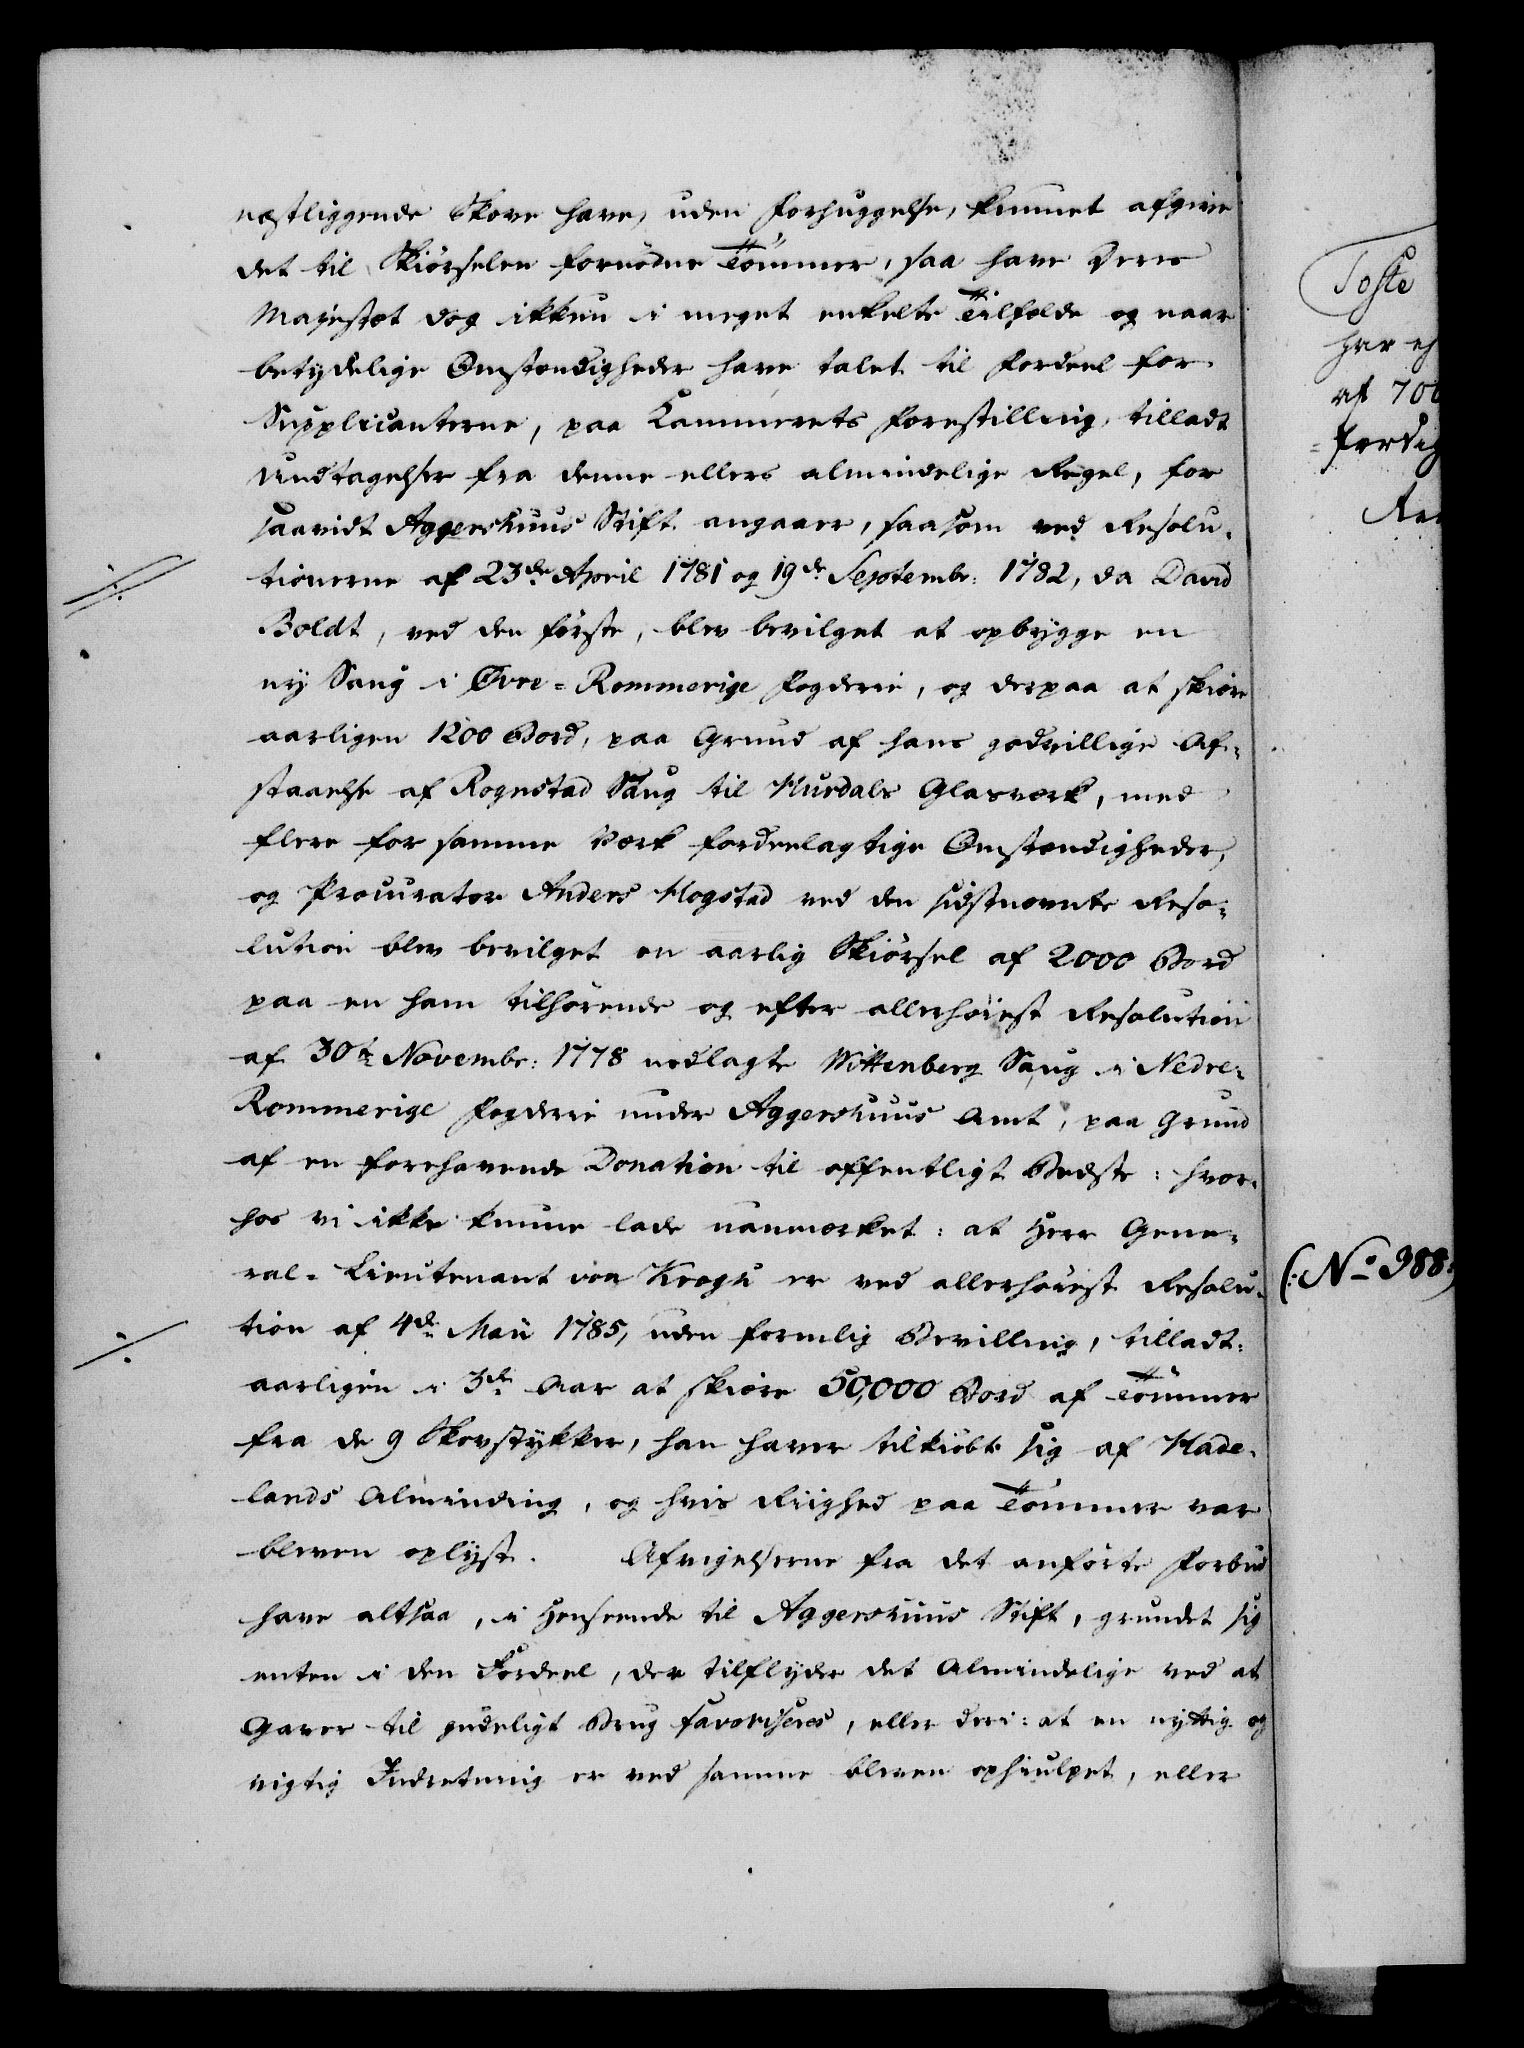 næstliggende Skove have, uden Forhuggelse, kunnet afgive
det til Skiørselen fornødne Tømmer, saa have Deres
Majestæt dog ikkun i meget enkelte Tilfælde og naar
betydelige Omstændigheder have talet til Fordeel for
Supplicanterne, paa Kammerets Forestilling, tilladt
Undtagelser fra denne ellers almindelige Regel, for
saavidt Aggershuus Stift angaaer, saasom ved Resolu-
tionerne af 23de April 1781 og 19de Septembr: 1782, da David
Boldt, ved den første, blev bevilget at opbygge en
ny Saug i Øvre-Rommerige Fogderie, og derpaa at skiøre
aarligen 1200 Bord, paa Grund af hans godvillige Af-
staaelse af Rognstad Saug til Hurdals Glasværk, med
flere for samme Værk fordeelagtige Omstændigheder,
og Procurator Anders Hogstad ved den sidstnævnte Reso-
lution blev bevilget en aarlig Skiørsel af 2000 Bord
paa en ham tilhørende og efter allerhøiest Resolution
af 30te Novembr: 1778 nedlagte Wittenberg Saug i Nedre-
Rommerige Fogderie under Aggershuus Amt, paa Grund
af en forehavende Donation til offentligt Bedste: hvor-
hos vi ikke kunne lade uanmærket: at Herr Gene-
ral-Lieutenant von Krogh er ved allerhøiest Resolu-
tion af 4de Maii 1785, uden formlig Bevilling, tilladt:
aarligen i 3de Aar at skiøre 50,000 Bord af Tømmer
fra de 9 Skovstykker, han haver tilkiøbt sig af Hade-
lands Alminding, og hvis Riighed paa Tømmer var
bleven oplyst. Afvigelserne fra det anførte Forbud
have altsaa, i Henseende til Aggershuus Stift, grundet sig
enten i den Fordeel, der tilflyder det Almindelige ved at
Gaver til gudeligt Brug favoriseres, eller deri: at en nyttig og
vigtig Indretning er ved samme bleven ophiulpet, eller
Toste
har ef
af 700
færdig
(: No 988:)